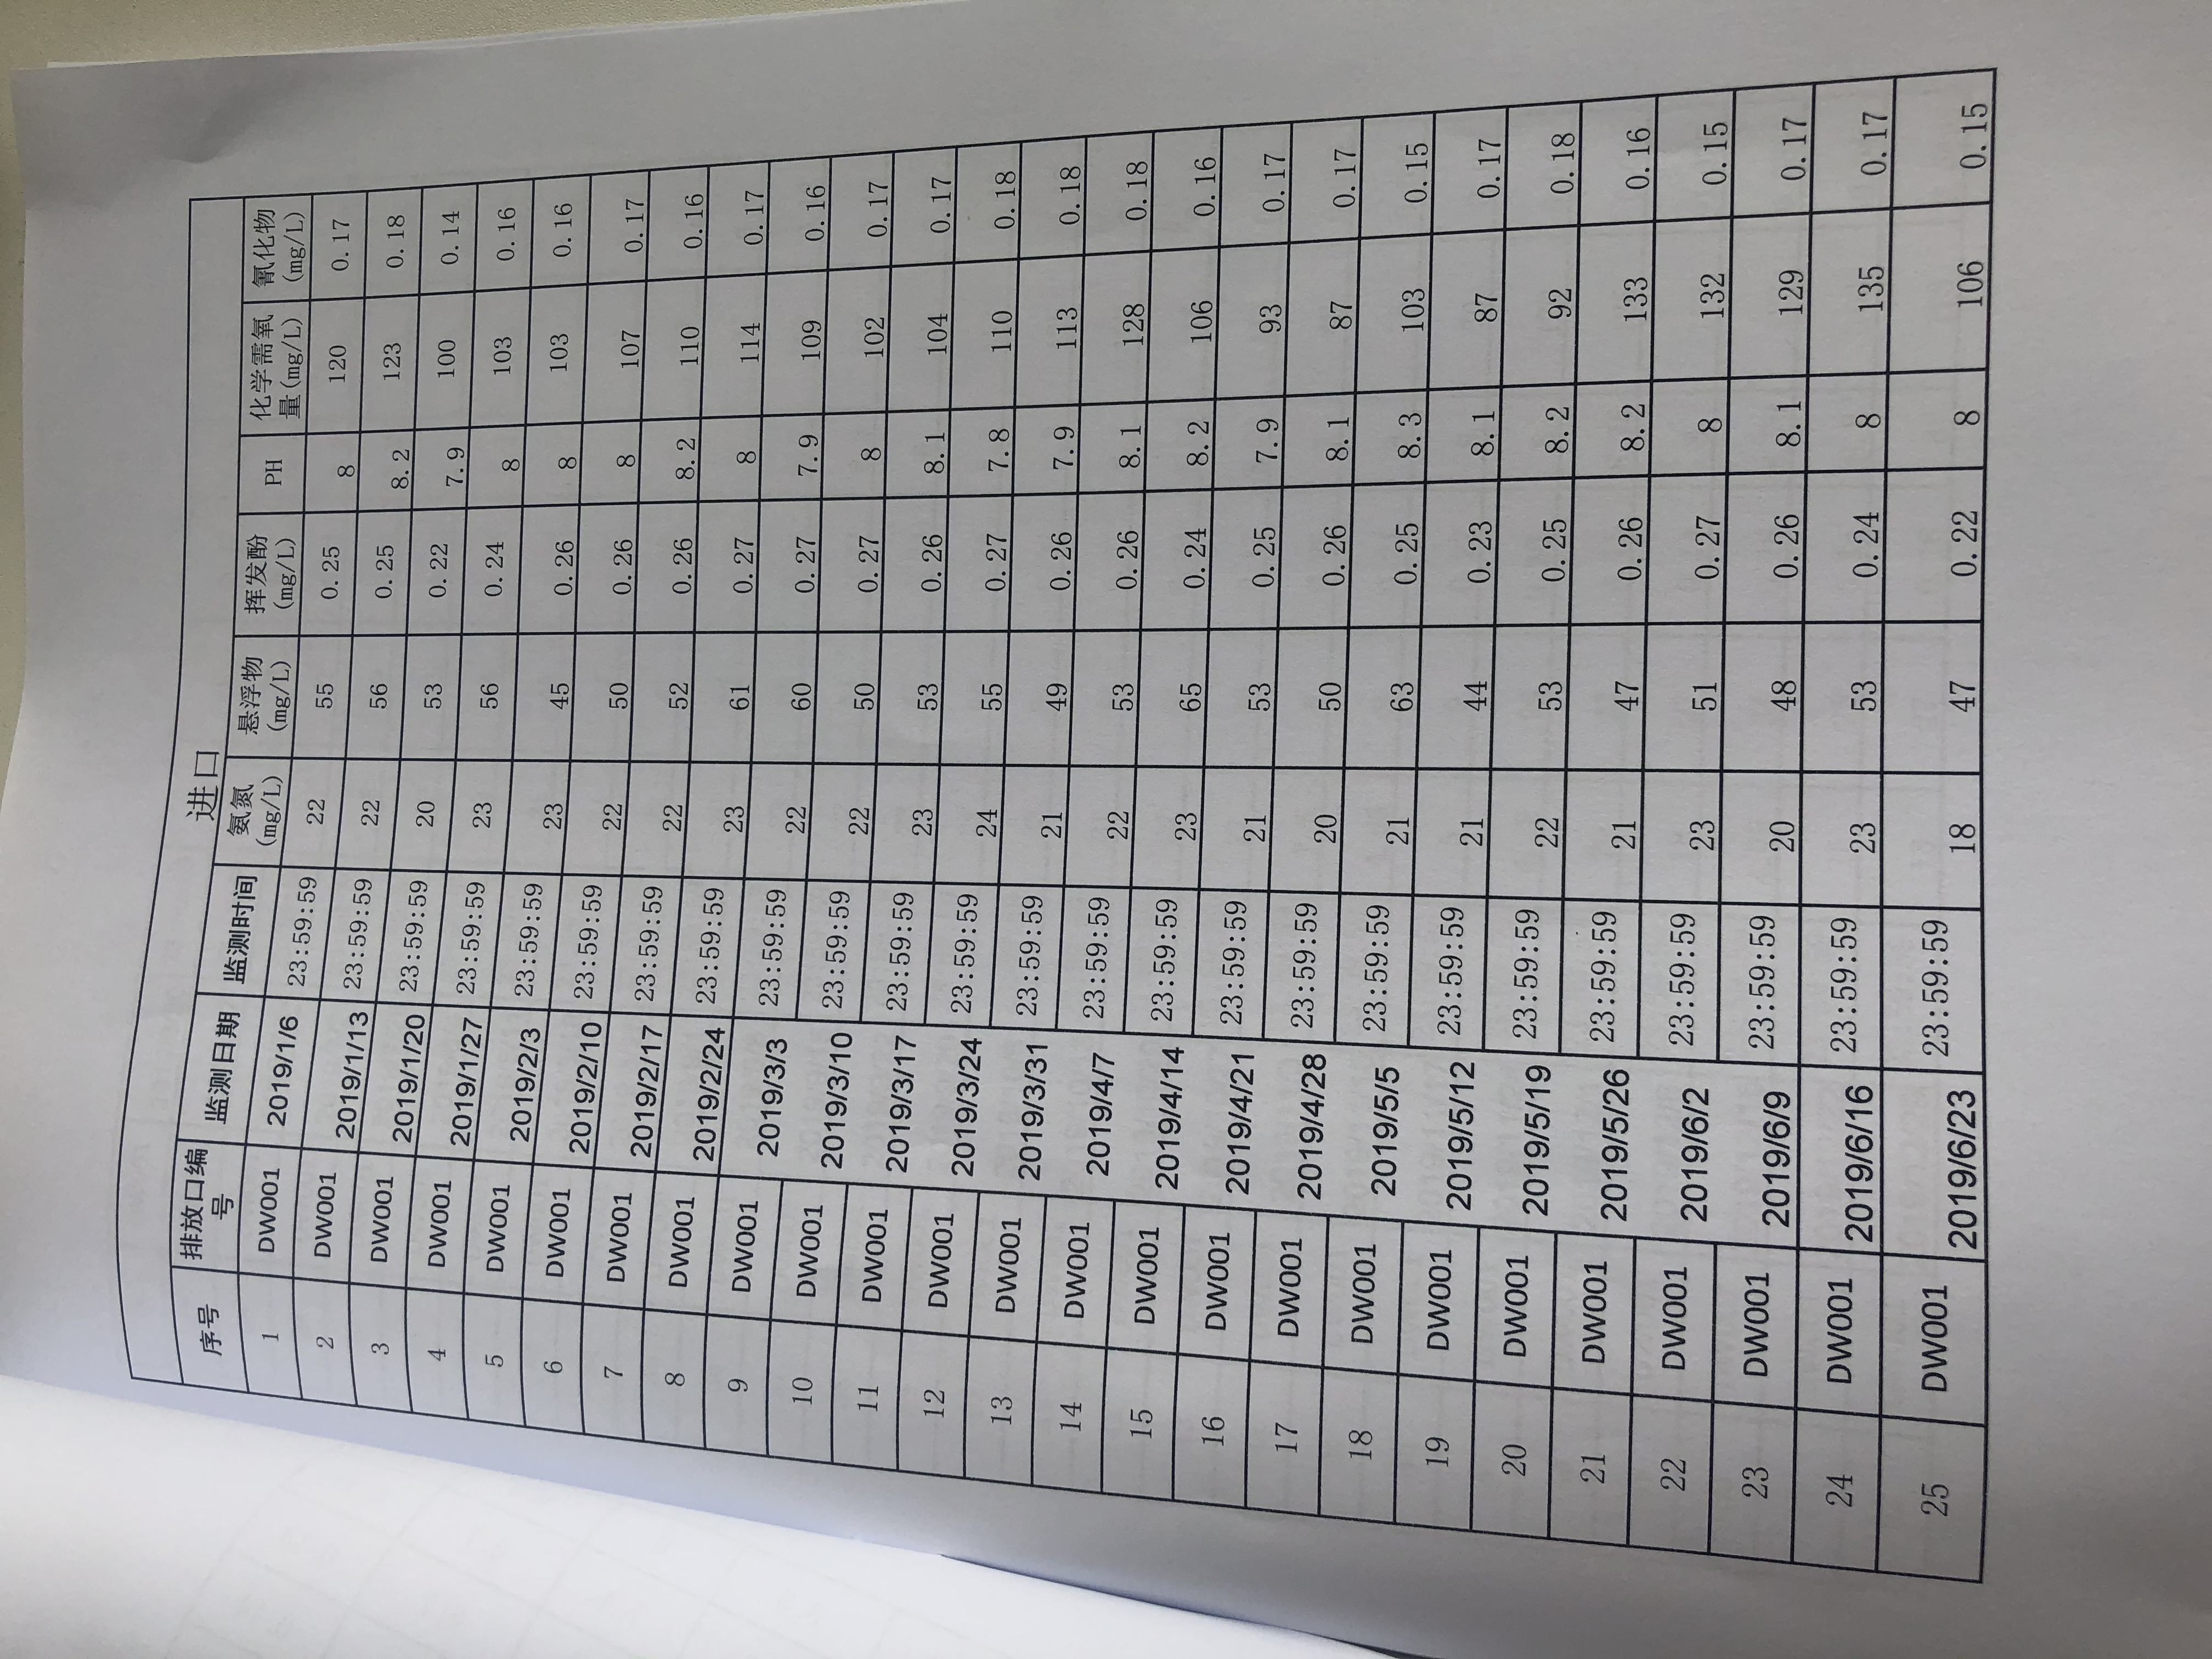 进口
序号 排放口编号 监测日期 监测时间 氨氮(mg/L) 悬浮物(mg/L) 挥发酚(mg/L) PH 化学需氧量(mg/L) 氰化物(mg/L)
1 DW001 2019/1/6 23:59:59 22 55 0.25 8 120 0.17
2 DW001 2019/1/13 23:59:59 22 56 0.25 8.2 123 0.18
3 DW001 2019/1/20 23:59:59 20 53 0.22 7.9 100 0.14
4 DW001 2019/1/27 23:59:59 23 56 0.24 8 103 0.16
5 DW001 2019/2/3 23:59:59 23 45 0.26 8 103 0.16
6 DW001 2019/2/10 23:59:59 22 50 0.26 8 107 0.17
7 DW001 2019/2/17 23:59:59 22 52 0.26 8.2 110 0.16
8 DW001 2019/2/24 23:59:59 23 61 0.27 8 114 0.17
9 DW001 2019/3/3 23:59:59 22 60 0.27 7.9 109 0.16
10 DW001 2019/3/10 23:59:59 22 50 0.27 8 102 0.17
11 DW001 2019/3/17 23:59:59 23 53 0.26 8.1 104 0.17
12 DW001 2019/3/24 23:59:59 24 55 0.27 7.8 110 0.18
13 DW001 2019/3/31 23:59:59 21 49 0.26 7.9 113 0.18
14 DW001 2019/4/7 23:59:59 22 53 0.26 8.1 128 0.18
15 DW001 2019/4/14 23:59:59 23 65 0.24 8.2 106 0.16
16 DW001 2019/4/21 23:59:59 21 53 0.25 7.9 93 0.17
17 DW001 2019/4/28 23:59:59 20 50 0.26 8.1 87 0.17
18 DW001 2019/5/5 23:59:59 21 63 0.25 8.3 103 0.15
19 DW001 2019/5/12 23:59:59 21 44 0.23 8.1 87 0.17
20 DW001 2019/5/19 23:59:59 22 53 0.25 8.2 92 0.18
21 DW001 2019/5/26 23:59:59 21 47 0.26 8.2 133 0.16
22 DW001 2019/6/2 23:59:59 23 51 0.27 8 132 0.15
23 DW001 2019/6/9 23:59:59 20 48 0.26 8.1 129 0.17
24 DW001 2019/6/16 23:59:59 23 53 0.24 8 135 0.17
25 DW001 2019/6/23 23:59:59 18 47 0.22 8 106 0.15